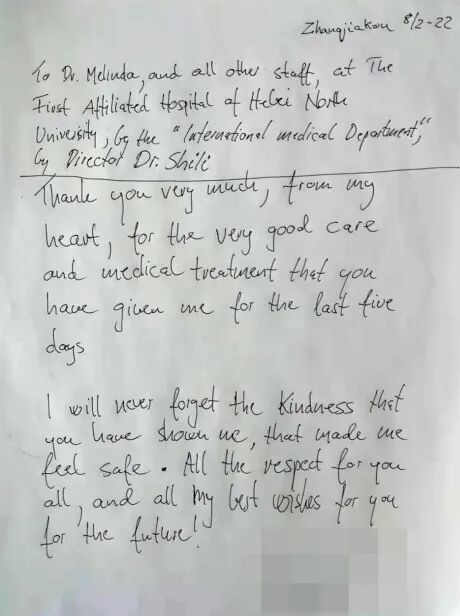 Zhangjiakou 8/2-22
To Dr. Melinda, and all other staff, at The
First Affiliated Hospital of Hebei North
University, by the "International medical Department,"
by Director Dr. Shili
Thank you very much, from my
heart, for the very good care
and medical treatment that you
have given me for the last five
days
I will never forget the kindness that
you have shown me, that made me
feel safe. All the respect for you
all, and all my best wishes for you
for the future!